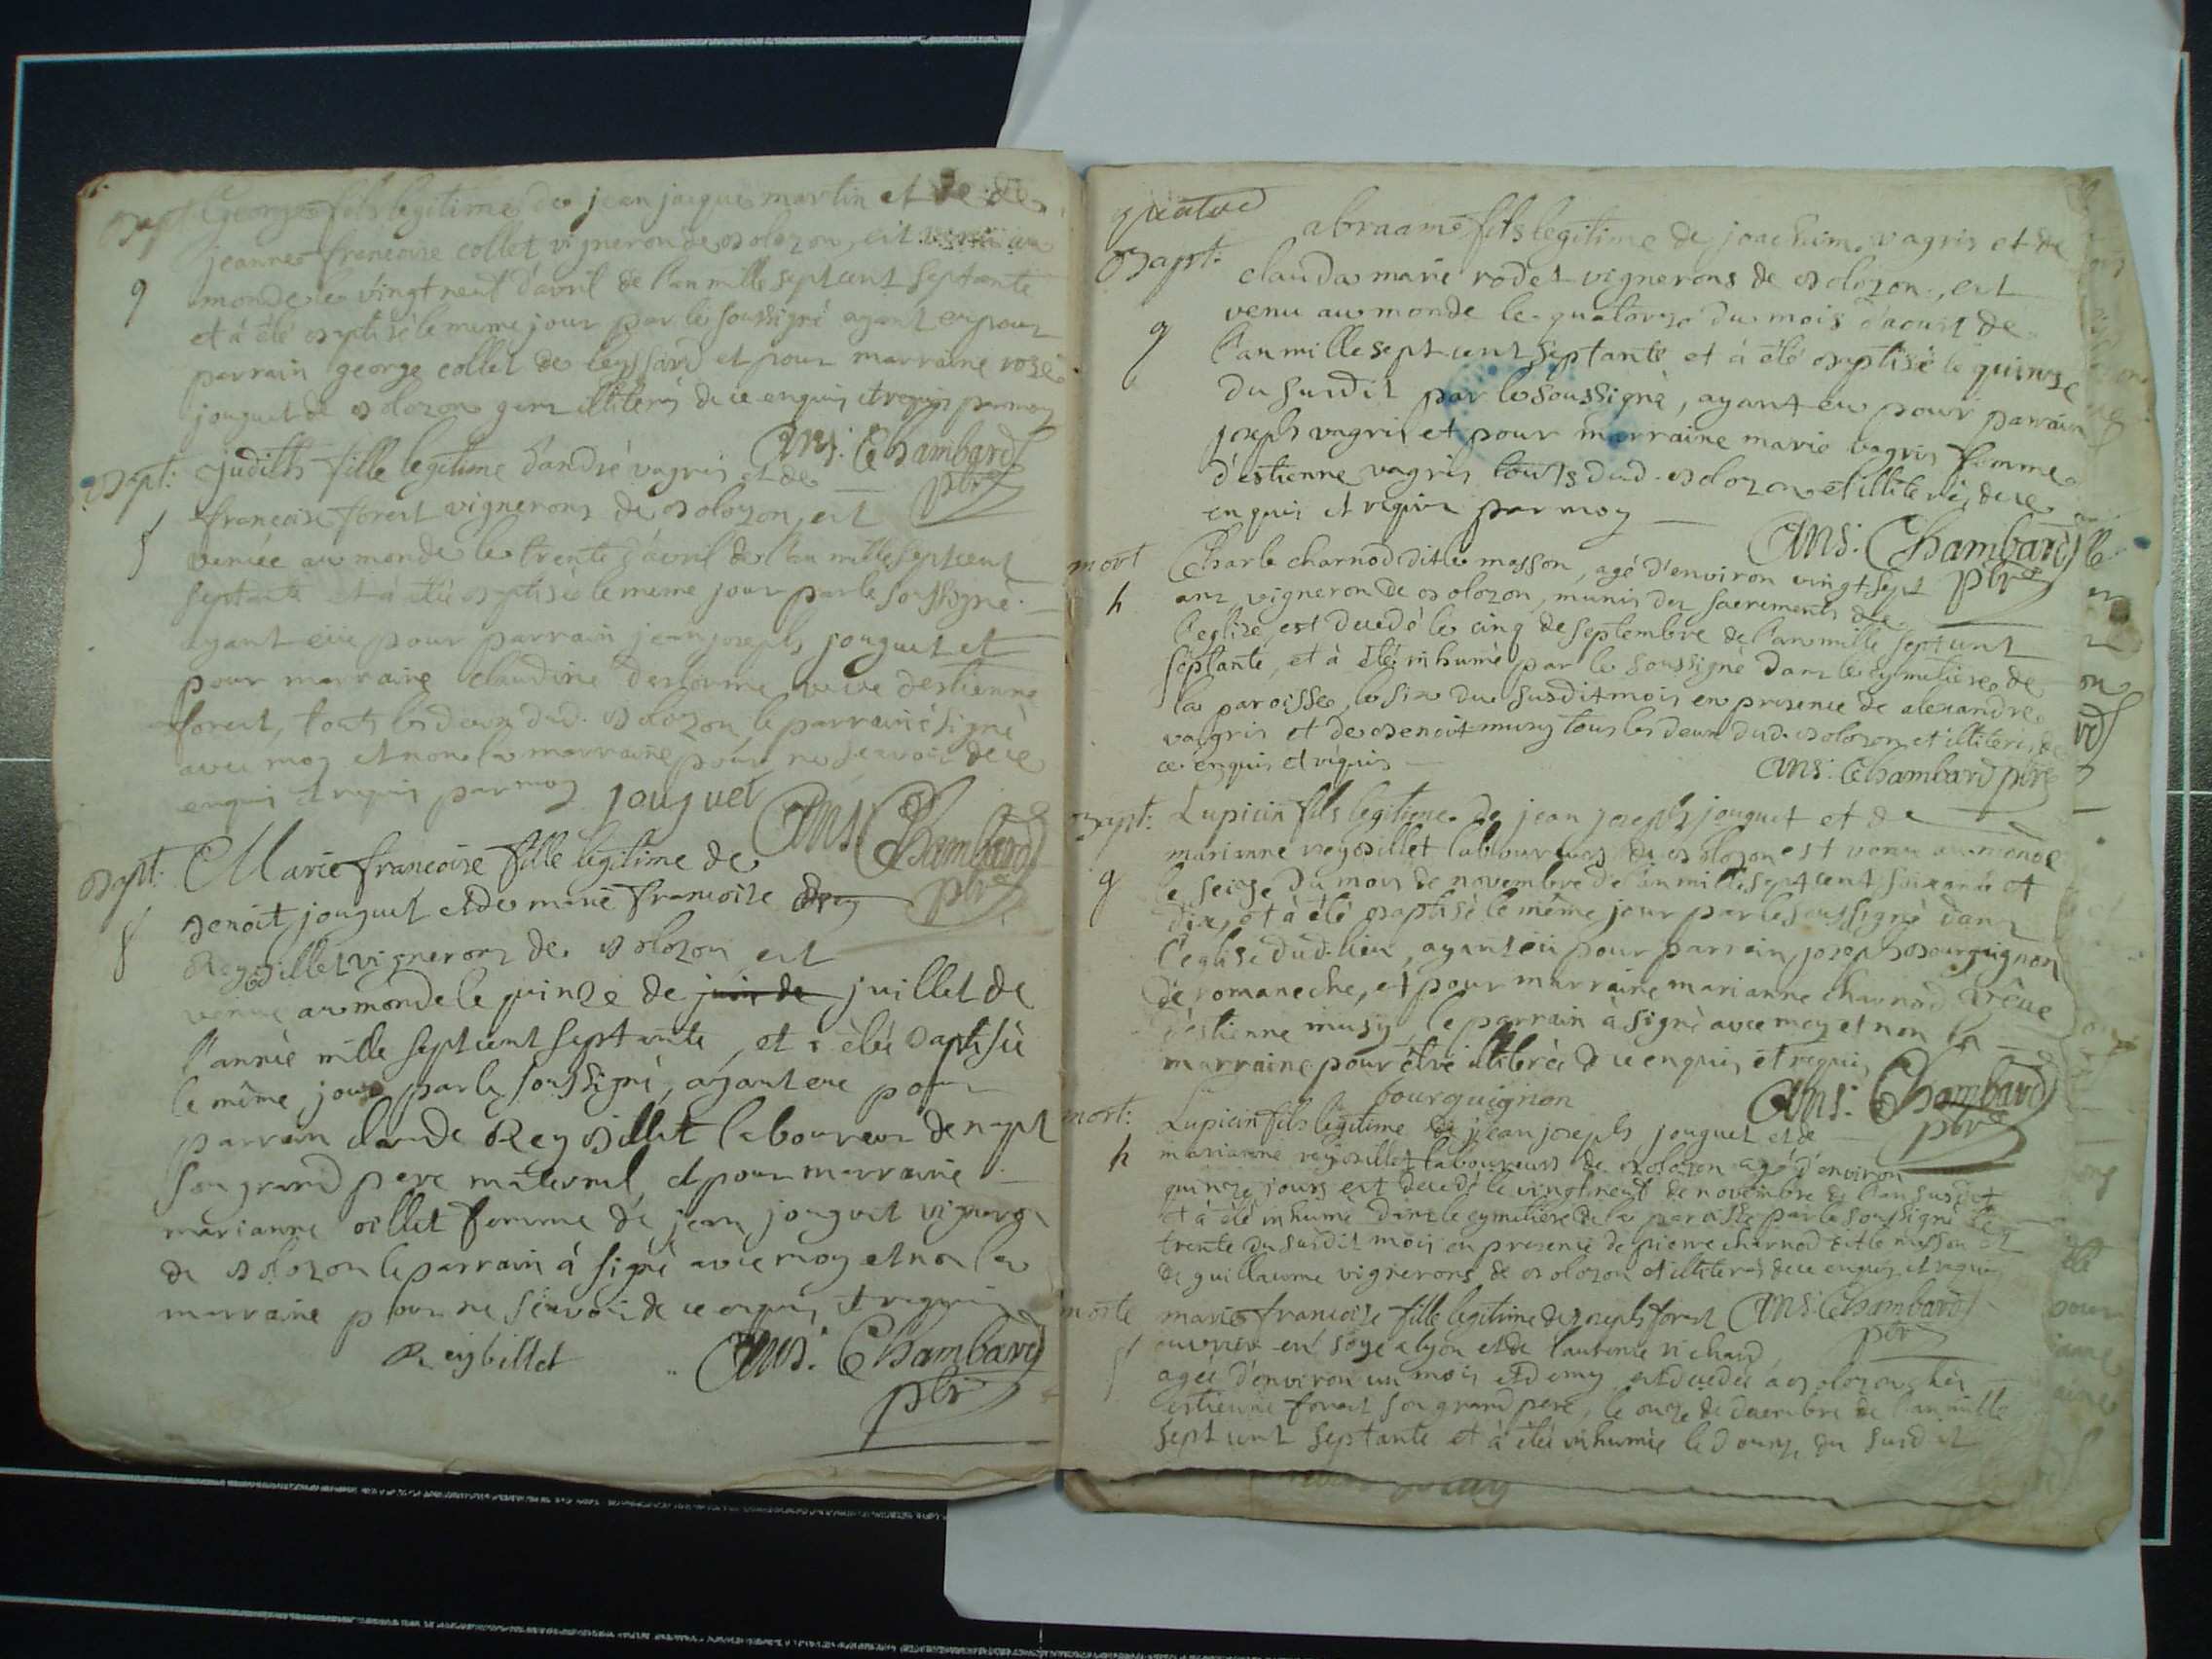 Bapt: george fils legitime de jean jaque martin et de
jeanne francoise collet vigneron de Bolozon, est venu au
g monde le vingt neuf d'avril de l'an mille sept cent septante
et à été Baptisé le meme jour par le soussigné ayant eu pour
parrain george collet de leyssard et pour marraine rose
jouguet de Bolozon gens illiterés de ce enquis et requis par moy
Ans: Chambard
pbre
Bapt: Judith fille legitime d'andré vagris et de
francoise forest vignerons de Bolozon, est
f venüe au monde le trente d'avril de l'an mille sept cent
septante et a étée Baptisée le meme jour par le soussigné
ayant eüe pour parrain jean joseph jouguet et
pour marraine claudine veuve d'estienne
forest, touts les deux dud. Bolozon, le parrain à signé
avec moy et non la marraine pour ne sçavoir de ce
enquis et requis par moy jouguet
Ans: Chambard
pbre
Bapt: Marie francoise fille legitime de
Benoit jouguet et de marie francoise
f Reybillet vignerons de Bolozon est
venüe au monde le quinze de juin de juillet de
l'année mille sept cent septante, et à étée Baptisée
le même jour par le soussigné, ayant eue pour
parrain claude Reybillet laboureur de napt
son grand pere maternel et pour marraine
marianne billet femme de jean jouguet vigneron
de Bolozon le parrain à signé avec moy et non la
marraine pour ne sçavoir de ce enquis et requis
Reybillet Ans: Chambard
pbre
abraame fils legitime de joachim vagris et de
Bapt: clauda marie rodet vignerons de Bolozon, est
venu au monde le quatorze du mois d'aoust de
g l'an mille sept cent septante et à été Baptisé le quinze
du susdit par le soussigné, ayant eu pour parrain
joseph vagris et pour marraine marie vagris femme
d'estienne vagris touts dud. Bolozon et illiterés de ce
enquis et requis par moy
Ans: Chambard
pbre
mort Charle charnod dit le masson, agé d'environ vingt sept
h ans vigneron de Bolozon, munis des sacrements de
l'eglise est decedé le cinq de septembre de l'an mille sept cent
septante, et à été inhumé par le soussigné dans le cymetiere de
la paroisse, le six du susdit mois en presence de alexandre
vagris et de Benoit musy tous les deux dud. Bolozon et illiterés de
ce enquis et requis
Ans: Chambard pbre
Bapt: Lupicin fils legitime de jean joseph jouguet et de
marianne reybillet laboureurs de Bolozon est venu au monde
g le seize du mois de novembre de l'an mille sept cent soixante et
dix, et à été Baptisé le même jour par le soussigné dans
l'eglise dud. lieu, ayant eü pour parrain joseph Bourguignon
de romaneche, et pour marraine marianne charnod vêue
d'estienne musy, le parrain à signé avec moy et non la
marraine pour être illiterée de ce enquis et requis
bourguignon
Ans: Chambard
pbre
mort: Lupicin fils legitime de jean joseph jouguet et de
h marianne reybillet laboureurs de Bolozon agé d'environ
quinze jours est decedé le vingt neuf de novembre de l'an susdit
et à été inhumé dans le cymetière de la paroisse par le soussigné le
trente du susdit mois en presence de pierre charnod dit le masson et
de guillaume vignerons de Bolozon et illiterés de ce enquis et requis
Ans: Chambard
pbre
morte marie francoise fille legitime de joseph forest
ouvrier en soye a lyon et de laurence richard
f agée d'environ un mois et demy est decedée à Bolozon chés
estienne forest son grand pere, le onze de decembre de l'an mille
sept cent septante et à étée inhumée le douze du susdit